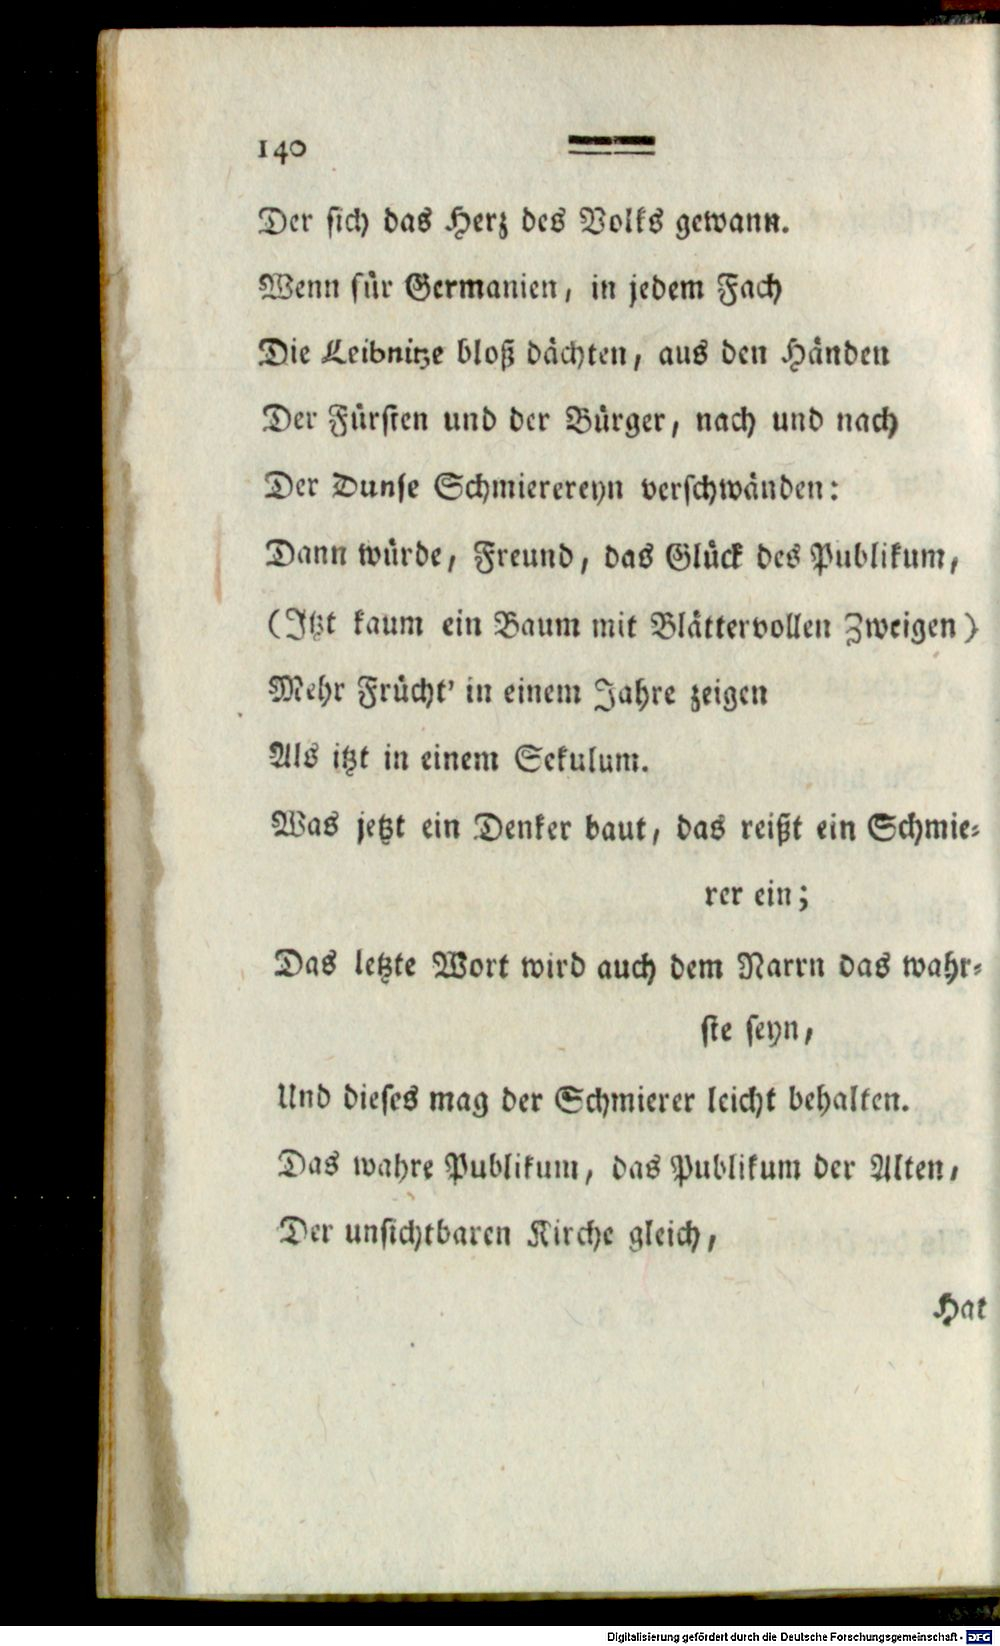 140
Der sich das Herz des Volks gewann.
Wenn für Germanien, in jedem Fach
Die Leibnitze bloß dächten, aus den Händen
Der Fürsten und der Bürger, nach und nach
Der Dunse Schmierereyn verschwänden:
Dann würde, Freund, das Glück des Publikum,
(Itzt kaum ein Baum mit Blättervollen Zweigen)
Mehr Frücht' in einem Jahre zeigen
Als itzt in einem Sekulum.
Was jetzt ein Denker baut, das reißt ein Schmie-
rer ein;
Das letzte Wort wird auch dem Narrn das wahr-
ste seyn,
Und dieses mag der Schmierer leicht behalten.
Das wahre Publikum, das Publikum der Alten,
Der unsichtbaren Kirche gleich,
Hat
Digitalisierung gefördert durch die Deutsche Forschungsgemeinschaft - DFG